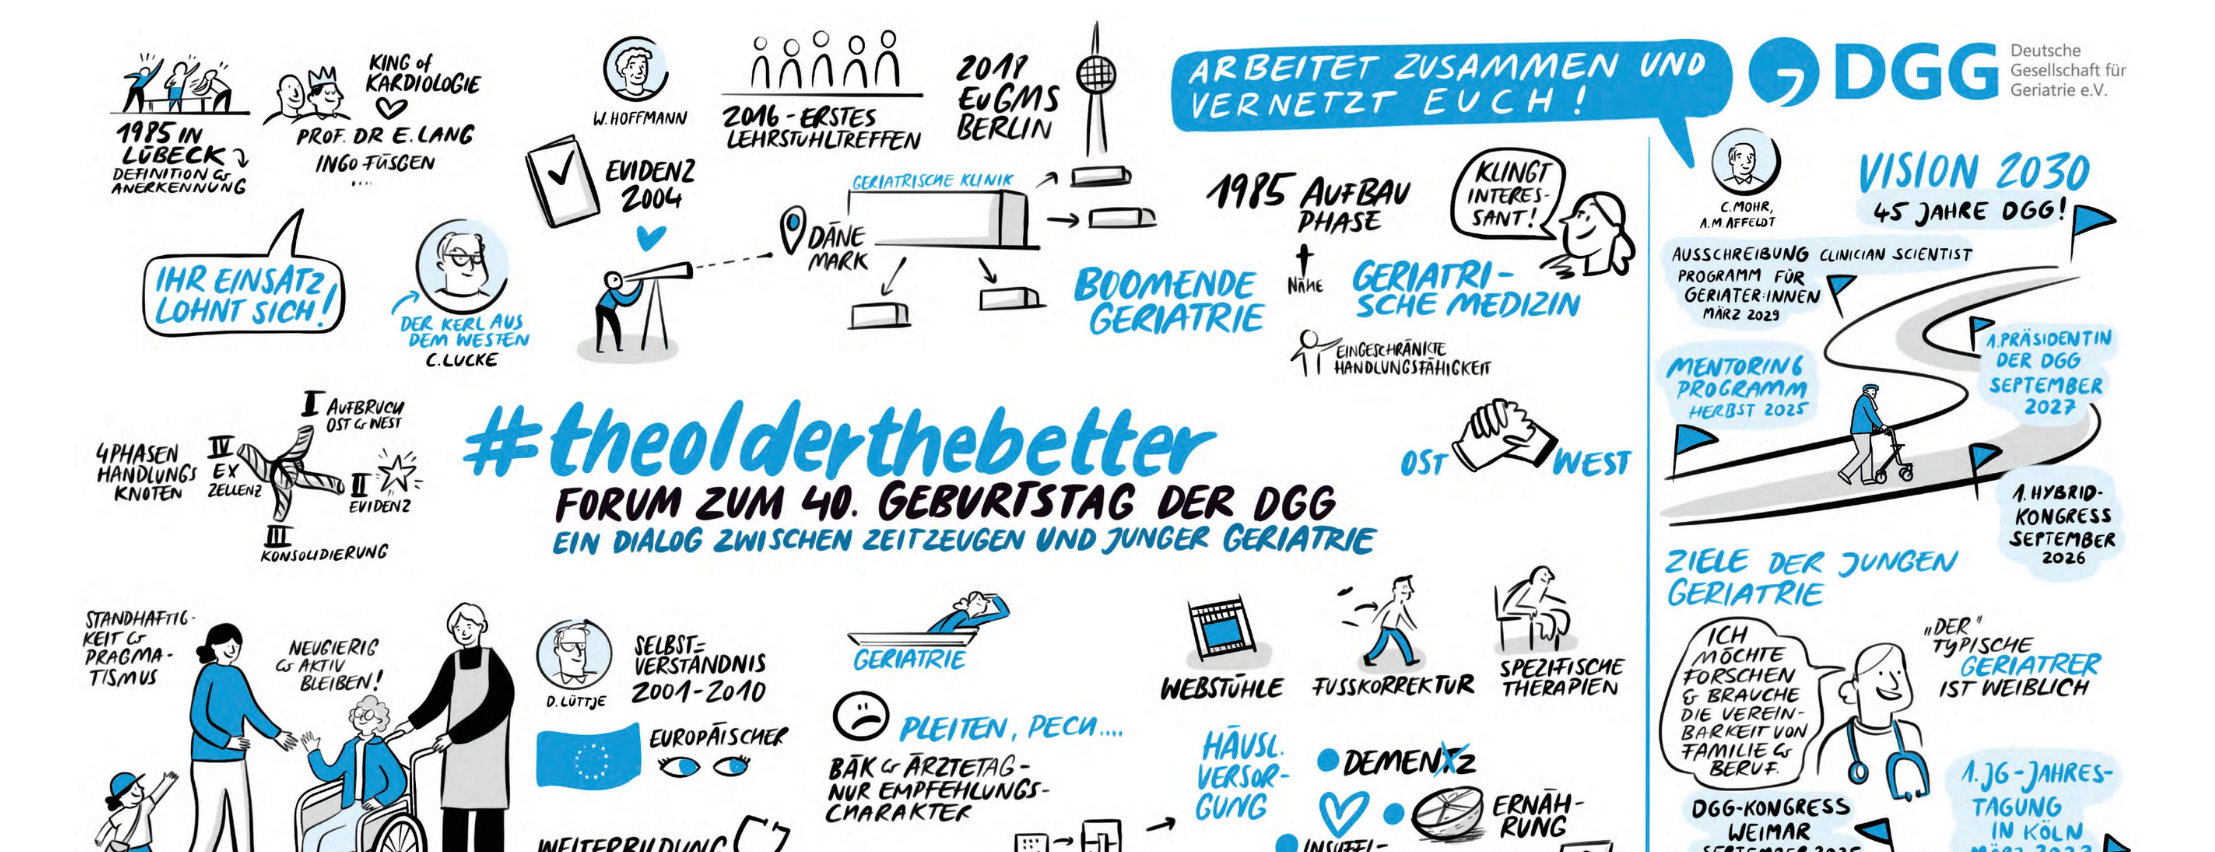 1985 IN
LÜBECK
DEFINITION &
ANERKENNUNG
KING of
KARDIOLOGIE
PROF. DR E. LANG
INGO FÜSGEN
....
IHR EINSATZ
LOHNT SICH!
DER KERL AUS
DEM WESTEN
C. LUCKE
W. HOFFMANN
EVIDENZ
2004
2016 - ERSTES
LEHRSTUHLTREFFEN
2018
EuGMS
BERLIN
GERIATRISCHE KLINIK
DÄNE
MARK
ARBEITET ZUSAMMEN UND
VERNETZT EUCH!
1985 AUFBAU
PHASE
KLINGT
INTERES-
SANT!
BOOMENDE
GERIATRIE
NÄHE
GERIATRI-
SCHE MEDIZIN
EINGESCHRÄNKTE
HANDLUNGSFÄHIGKEIT
OST
WEST
4 PHASEN
HANDLUNGS
KNOTEN
I AUFBRUCH
OST & WEST
II
EVIDENZ
III
KONSOLIDIERUNG
IV
EX
ZELLENZ
#theolderthebetter
FORUM ZUM 40. GEBURTSTAG DER DGG
EIN DIALOG ZWISCHEN ZEITZEUGEN UND JUNGER GERIATRIE
STANDHAFTIG-
KEIT &
PRAGMA-
TISMUS
NEUGIERIG
& AKTIV
BLEIBEN!
D. LÜTTJE
SELBST=
VERSTÄNDNIS
2001-2010
EUROPÄISCHER
WEITERBILDUNG
GERIATRIE
PLEITEN, PECH....
BÄK & ÄRZTETAG-
NUR EMPFEHLUNGS-
CHARAKTER
WEBSTÜHLE
FUSSKORREKTUR
SPEZIFISCHE
THERAPIEN
HÄUSL.
VERSOR-
GUNG
DEMENXZ
ERNÄH-
RUNG
INSUFFI-
DGG
Deutsche
Gesellschaft für
Geriatrie e.V.
C. MOHR,
A.M. AFFELDT
VISION 2030
45 JAHRE DGG!
AUSSCHREIBUNG CLINICIAN SCIENTIST
PROGRAMM FÜR
GERIATER:INNEN
MÄRZ 2029
1. PRÄSIDENTIN
DER DGG
SEPTEMBER
2027
MENTORING
PROGRAMM
HERBST 2025
1. HYBRID-
KONGRESS
SEPTEMBER
2026
ZIELE DER JUNGEN
GERIATRIE
ICH
MÖCHTE
FORSCHEN
& BRAUCHE
DIE VEREIN-
BARKEIT VON
FAMILIE &
BERUF.
„DER"
TYPISCHE
GERIATRER
IST WEIBLICH
DGG-KONGRESS
WEIMAR
SEPTEMBER 2025
1. JG-JAHRES-
TAGUNG
IN KÖLN
MÄRZ 2027